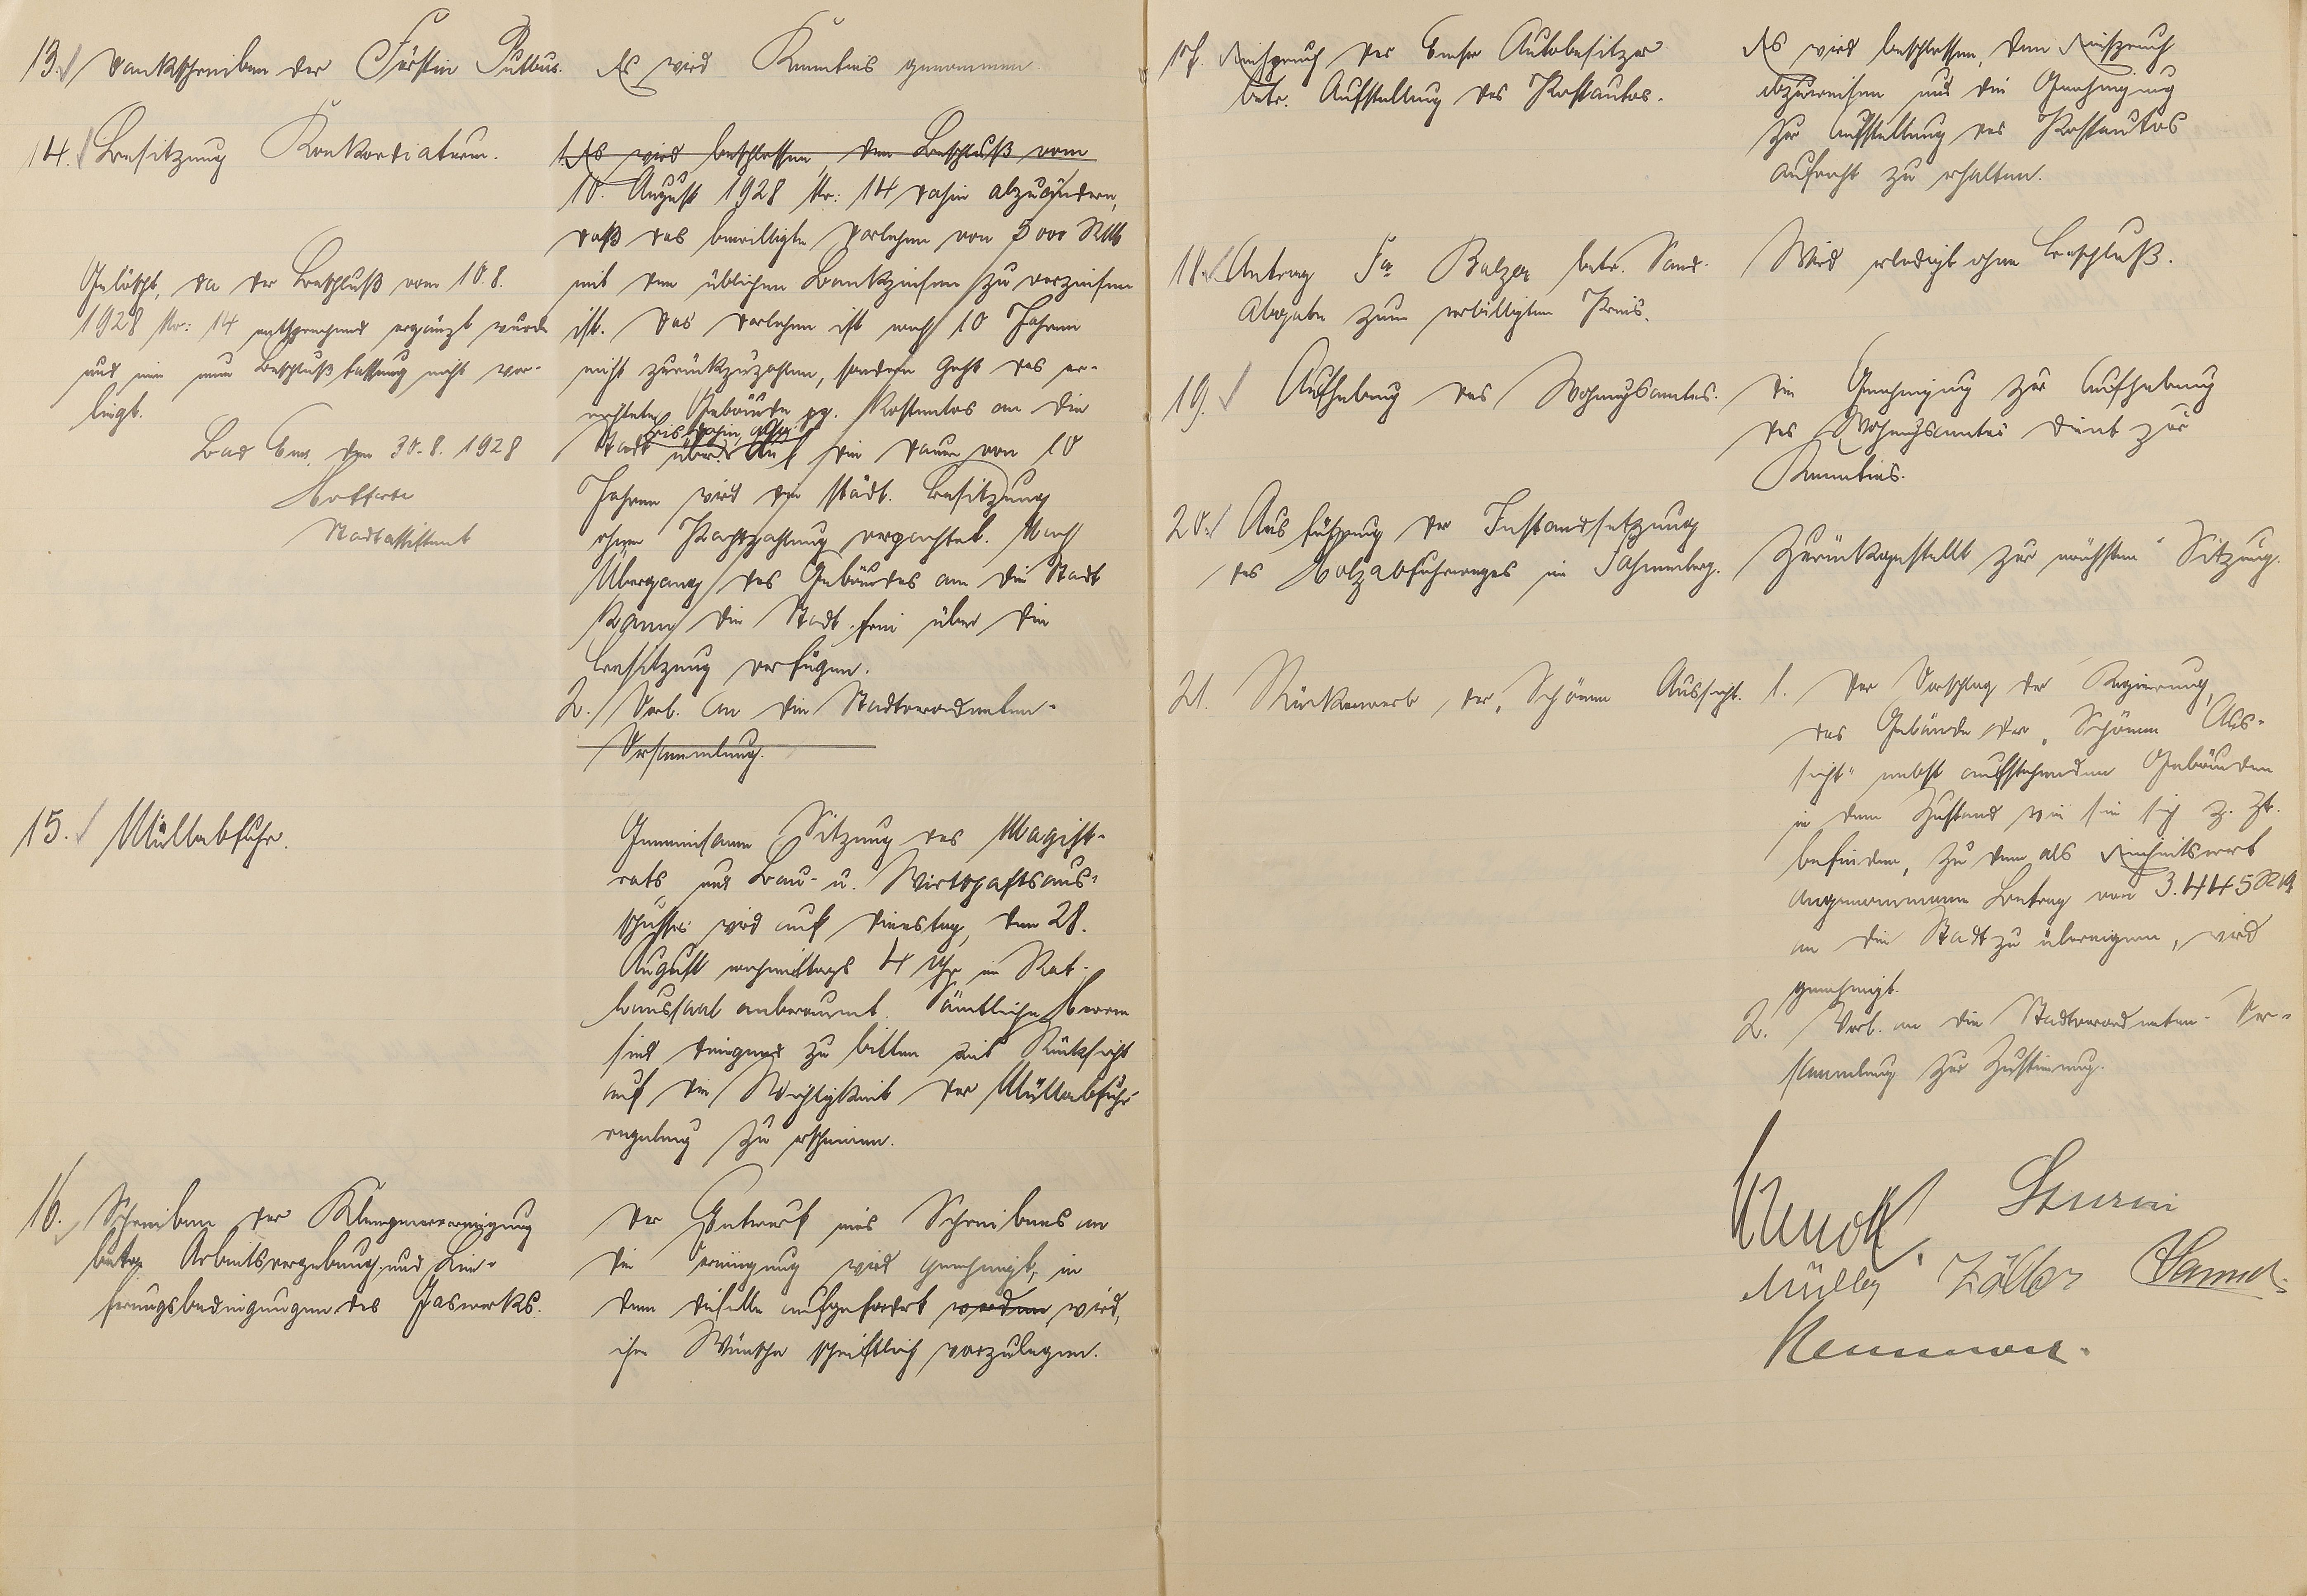 13. Dankschreiben der Fürstin Putbus.
Es wird Kenntnis genommen.
14. Besitzung Konkordiaturm.
1. Es wird beschlossen, den Beschluß vom
10. August 1928 Nr: 14 dahin abzuändern,
daß das bewilligte Darlehen von 5000 RM
mit den üblichen Bankzinsen zu verzinsen
ist. Das Darlehen ist nach 10 Jahren
nicht zurückzuzahlen, sondern geht das er-
richtete Gebäude pp. kostenlos an die
Stadt über. Auf die Dauer von 10
bis dahin
Jahren wird die städt. Besitzung
ohne Pachtzahlung verpachtet. Nach
Übergang des Gebäudes an die Stadt
kann die Stadt frei über die
Besitzung verfügen.
2. Vorl. an die Stadtverordneten-
Versammlung.
Gelöscht, da der Beschluß vom 10.8.
1928 Nr: 14 entsprechend ergänzt wurde
und eine neue Beschlußfassung nicht vor-
liegt.
Bad Ems, den 30.8.1928
Stadtassistent
15. Müllabfuhr.
Gemeinsame Sitzung des Magist-
rats und Bau- u. Wirtschaftsaus-
schusses wird auf Dienstag, den 28.
August nachmittags 4 Uhr im Rat-
haussaal anberaumt. Sämtliche Herren
sind dringend zu bitten mit Rücksicht
auf die Wichtigkeit der Müllabfuhr-
regelung zu erscheinen.
16. Schreiben der Klempnervereinigung
betr. Arbeitsvergebung und Lie-
ferungsbedingungen des Gaswerks.
Der Entwurf eines Schreibens an
die Vereinigung wird genehmigt, in
dem dieselbe aufgefordert werden wird,
ihre Wünsche schriftlich vorzulegen.
17. Einspruch der Emser Autobesitzer
betr. Aufstellung des Postautos.
Es wird beschlossen, den Einspruch
abzuweisen und die Genehmigung
zur Aufstellung des Postautos
aufrecht zu erhalten.
18. Antrag Fa Balzer betr. Sand-
abgabe zum verbilligten Preis.
Wird erledigt ohne Beschluß.
19. Aufhebung des Wohnungsamtes.
Die Genehmigung zur Aufhebung
des Wohnungsamtes dient zur
Kenntnis.
20. Ausführung der Instandsetzung
des Holzabfuhrweges im Fahnenberg.
Zurückgestellt zur nächsten Sitzung.
21. Rückerwerb der "Schönen Aussicht.
1. Der Vorschlag der Regierung,
das Gebäude der "Schönen Aus-
sicht" nebst aufstehenden Gebäuden
in dem Zustand wie sie sich z. Zt.
befinden, zu dem als Einheitswert
angenommenen Betrag von 3.445 RM
an die Stadt zu übereignen, wird
genehmigt.
2. Vorl. an die Stadtverordneten-Ver-
sammlung zur Zustimmung.
Sturm
Müller Zöller